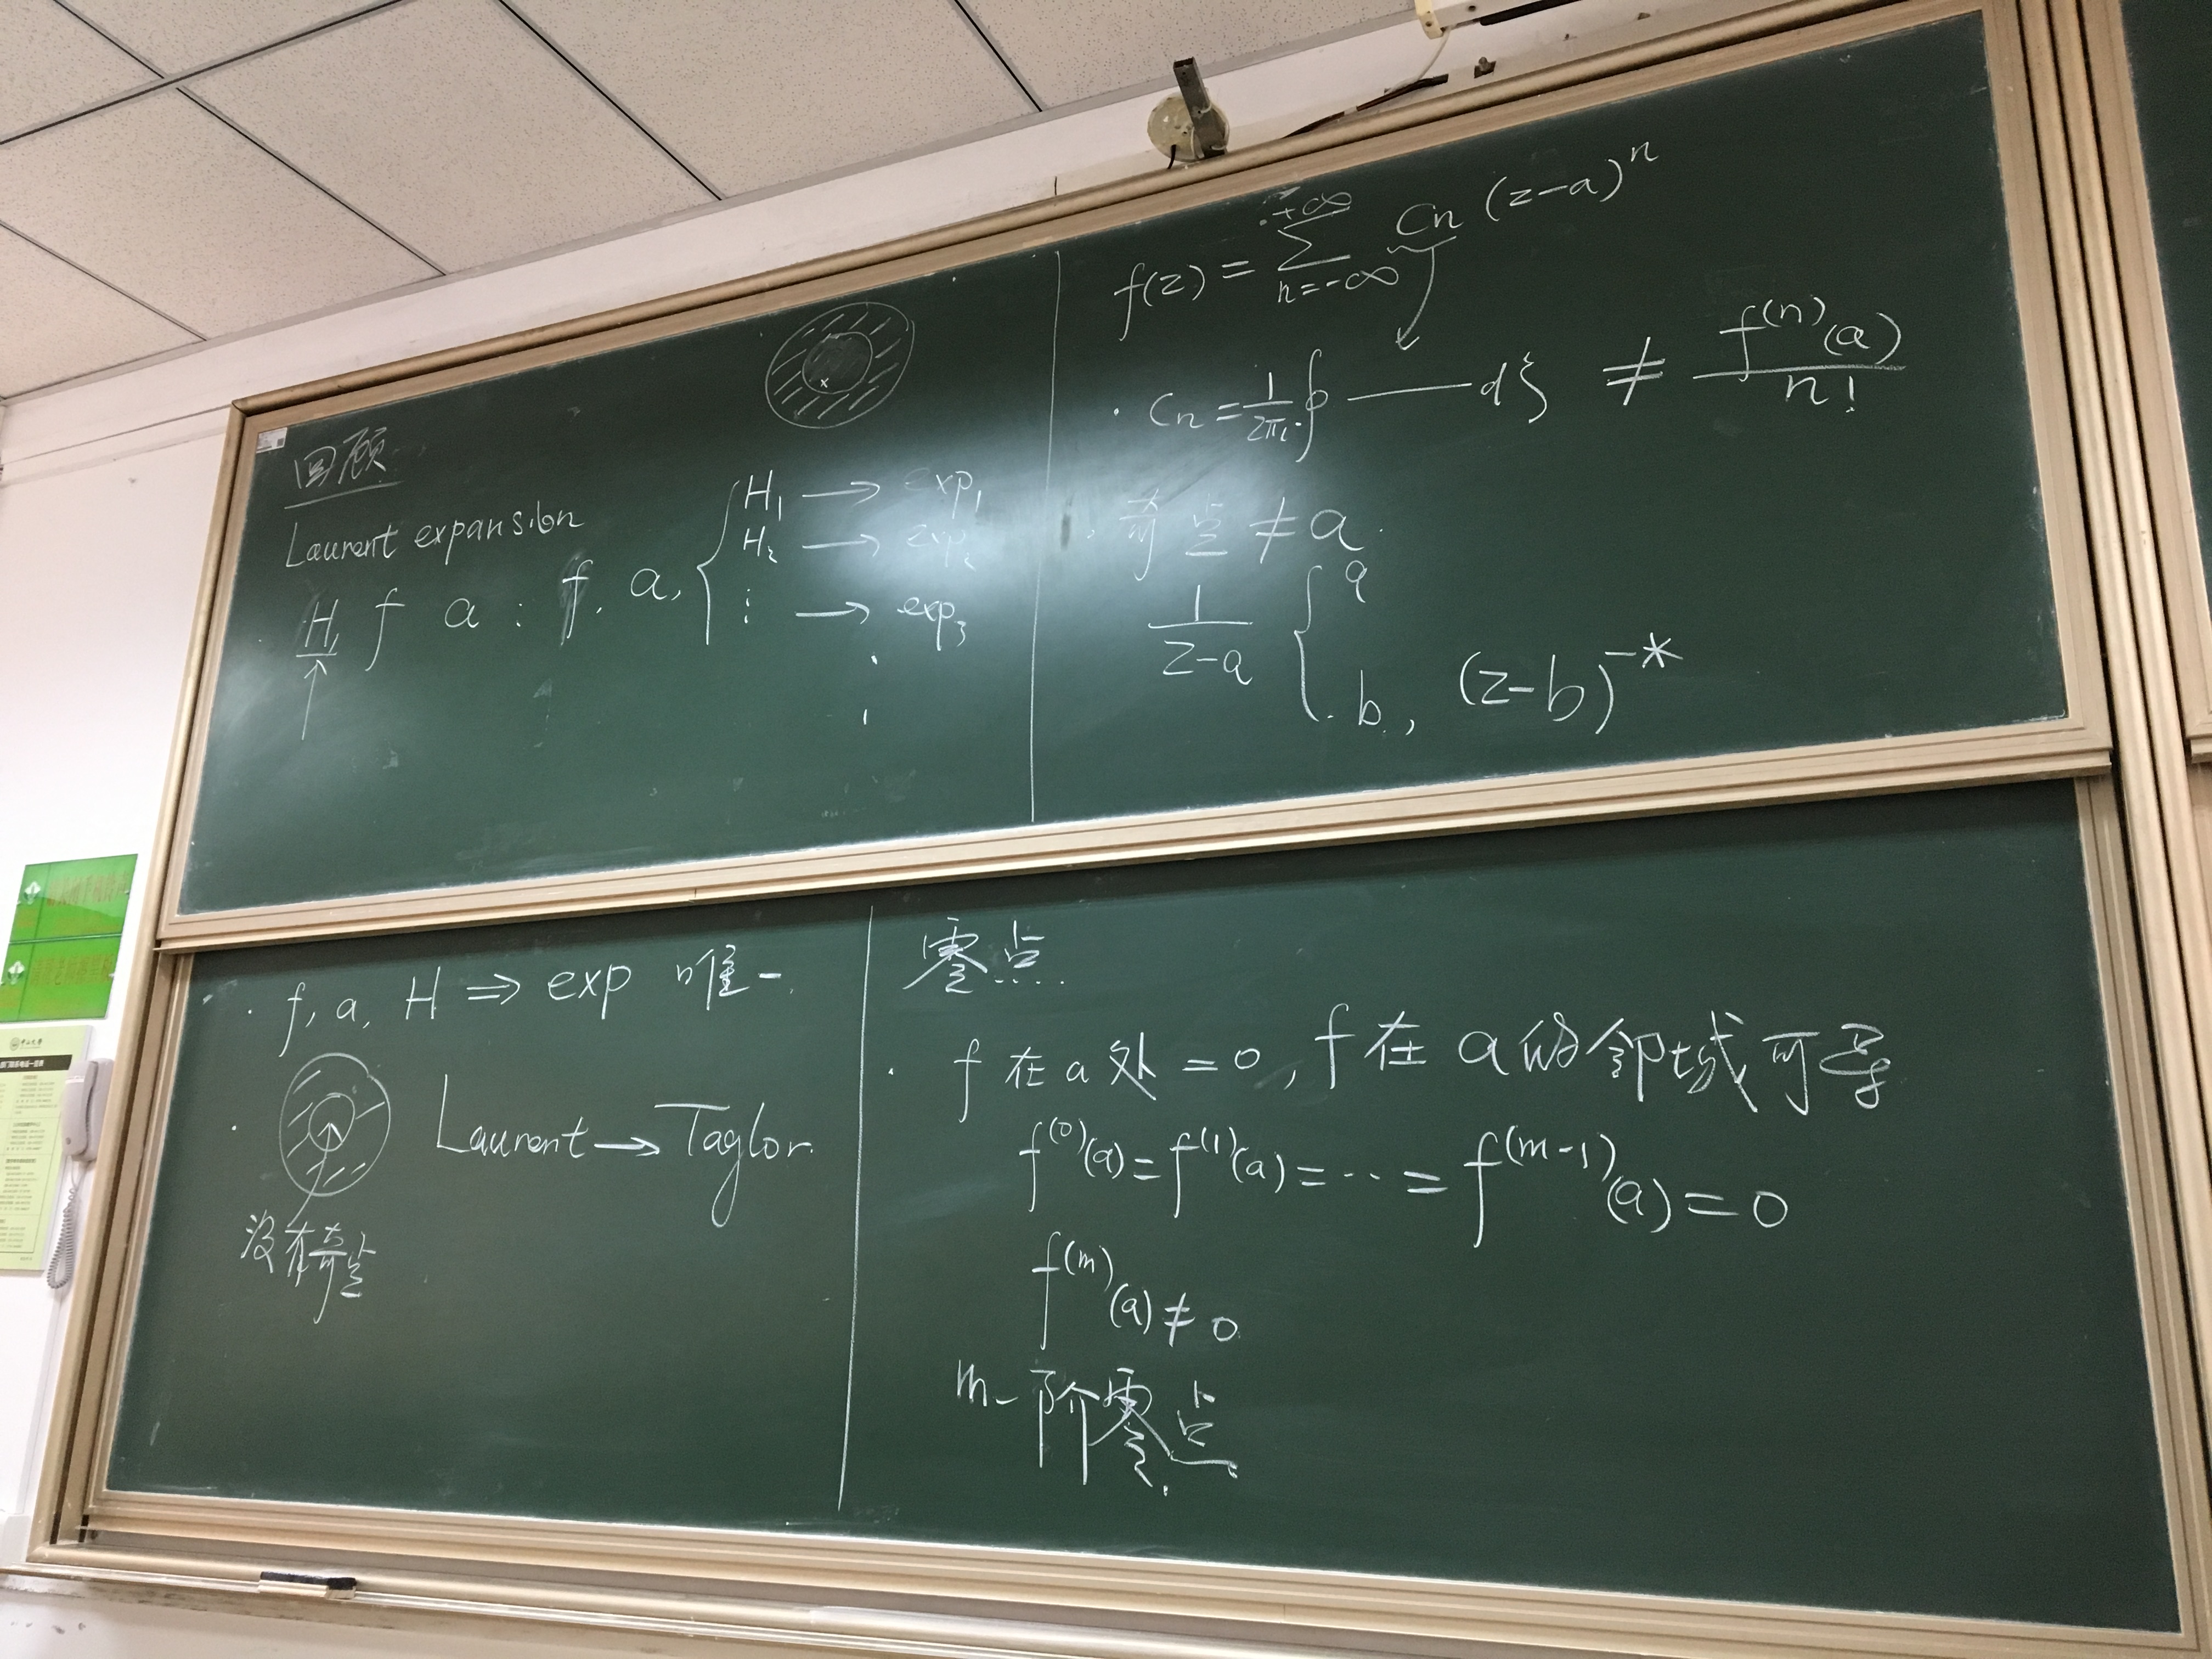 回顾
Laurent expansion
H, f a : f, a, { H₁ → exp₁
H₂ → exp₂
⋮ → exp₃
f(z) = ∑_{n=-∞}^{+∞} Cn (z-a)^n
· Cn = 1/2πi ∮ —— dζ ≠ f^(n)(a)/n!
· 奇点 ≠ a.
1/(z-a) { a
b, (z-b)^{-*}
· f, a, H ⇒ exp 唯一.
· Laurent → Taylor.
没有奇点
零点
· f 在 a 处 = 0, f 在 a 的邻域可导
f^(0)(a) = f^(1)(a) = ··· = f^(m-1)(a) = 0
f^(m)(a) ≠ 0
m-阶零点.
中山大学